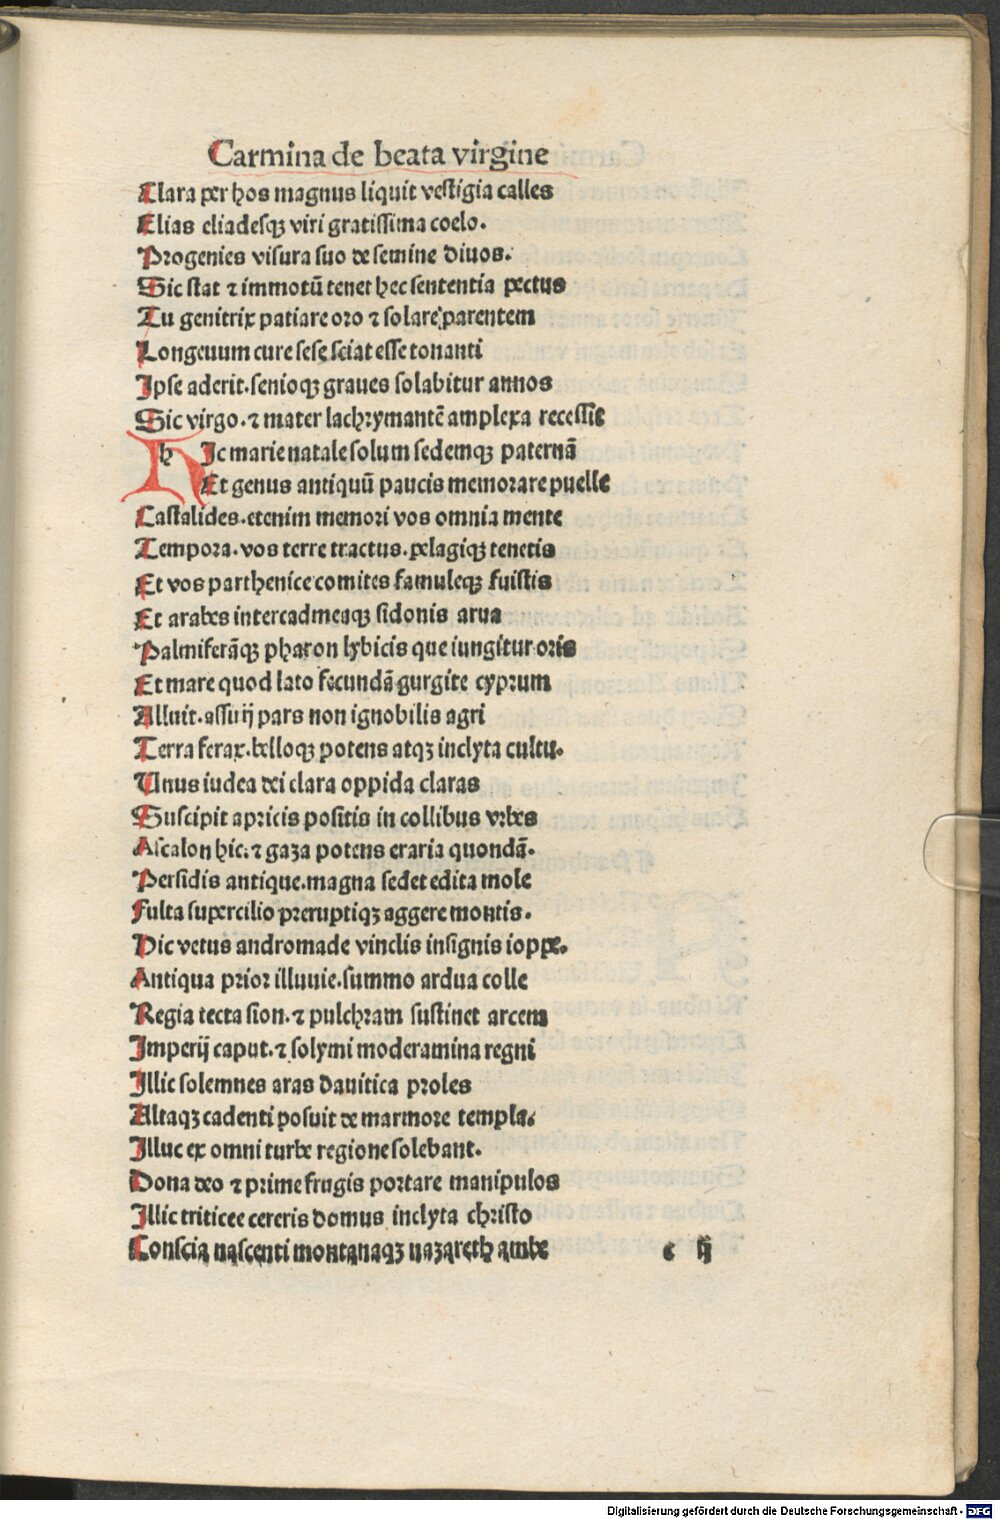 Carmina de beata virgine
Clara per hos magnus liquit vestigia calles
Elias eliadesqꝫ viri gratissima coelo.
Progenies visura suo de semine diuos.
Sic stat ⁊ immotū tenet hec sententia pectus
Tu genitrix patiare oro ⁊ solare parentem
Longeuum cure sese sciat esse tonanti
Ipse aderit. senioqꝫ graues solabitur annos
Sic virgo. ⁊ mater lachrymantē amplexa recessit
h Ic marie natale solum sedemqꝫ paternā
Et genus antiquū paucis memorare puelle
Castalides. etenim memori vos omnia mente
Tempora. vos terre tractus. pelagiqꝫ tenetis
Et vos parthenice comites famuleqꝫ fuistis
Et arabes inter cadmeaqꝫ sidonis arua
Palmiferāqꝫ pharon lybicis que iungitur oris
Et mare quod lato fecundā gurgite cyprum
Alluit. assurij pars non ignobilis agri
Terra ferax. belloqꝫ potens atqꝫ inclyta cultu.
Unus iudea dei clara oppida claras
Suscipit apricis positis in collibus vrbes
Ascalon hic. ⁊ gaza potens eraria quondā.
Persidis antique. magna sedet edita mole
Fulta supercilio preruptiqꝫ aggere montis.
Hic vetus andromade vinclis insignis ioppe.
Antiqua prior illuuie. summo ardua colle
Regia tecta sion. ⁊ pulchram sustinet arcem
Imperij caput. ⁊ solymi moderamina regni
Illic solemnes aras dauitica proles
Altaqꝫ cadenti posuit de marmore templa.
Illuc ex omni turbe regione solebant.
Dona deo ⁊ prime frugis portare manipulos
Illic triticee cereris domus inclyta christo
Conscia nascenti montanaqꝫ nazareth ambe
c ij
Digitalisierung gefördert durch die Deutsche Forschungsgemeinschaft - DFG